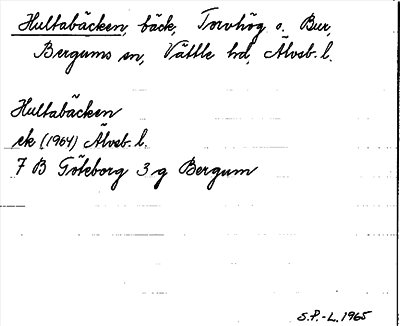 Hultabäcken, bäck, Torvhög o. Bur,
Bergums sn, Vättle hd, Älvsb. l.
Hultabäcken
ek (1964) Älvsb. l.
7 B Göteborg 3 g Bergum
S.P.-L. 1965